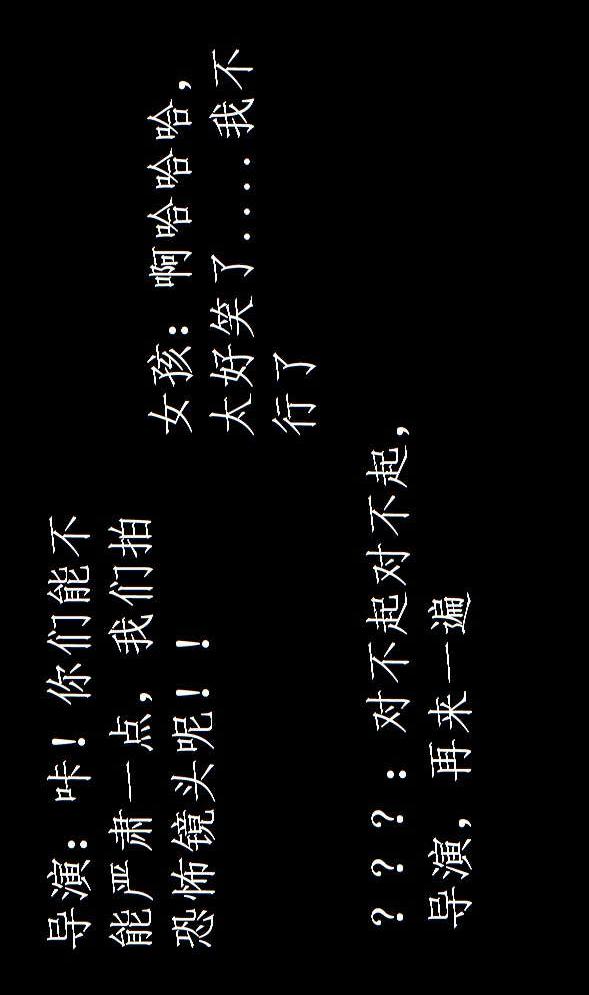 导演：咔！你们能不
能严肃一点，我们拍
恐怖镜头呢！！
女孩：啊哈哈哈，
太好笑了.....我不
行了
？？？：对不起对不起，
导演，再来一遍